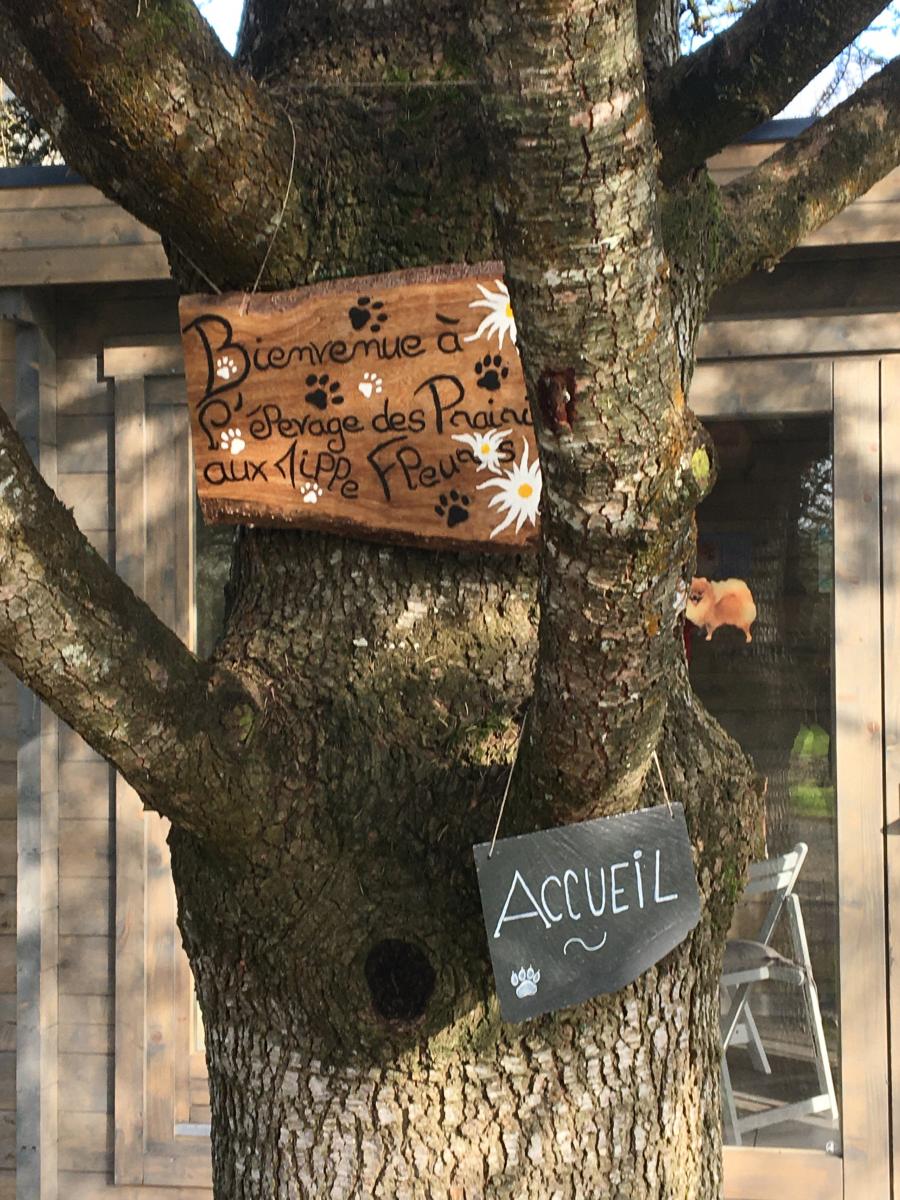 Bienvenue à
l'élevage des Prairi
aux Mille Fleurs
ACCUEIL